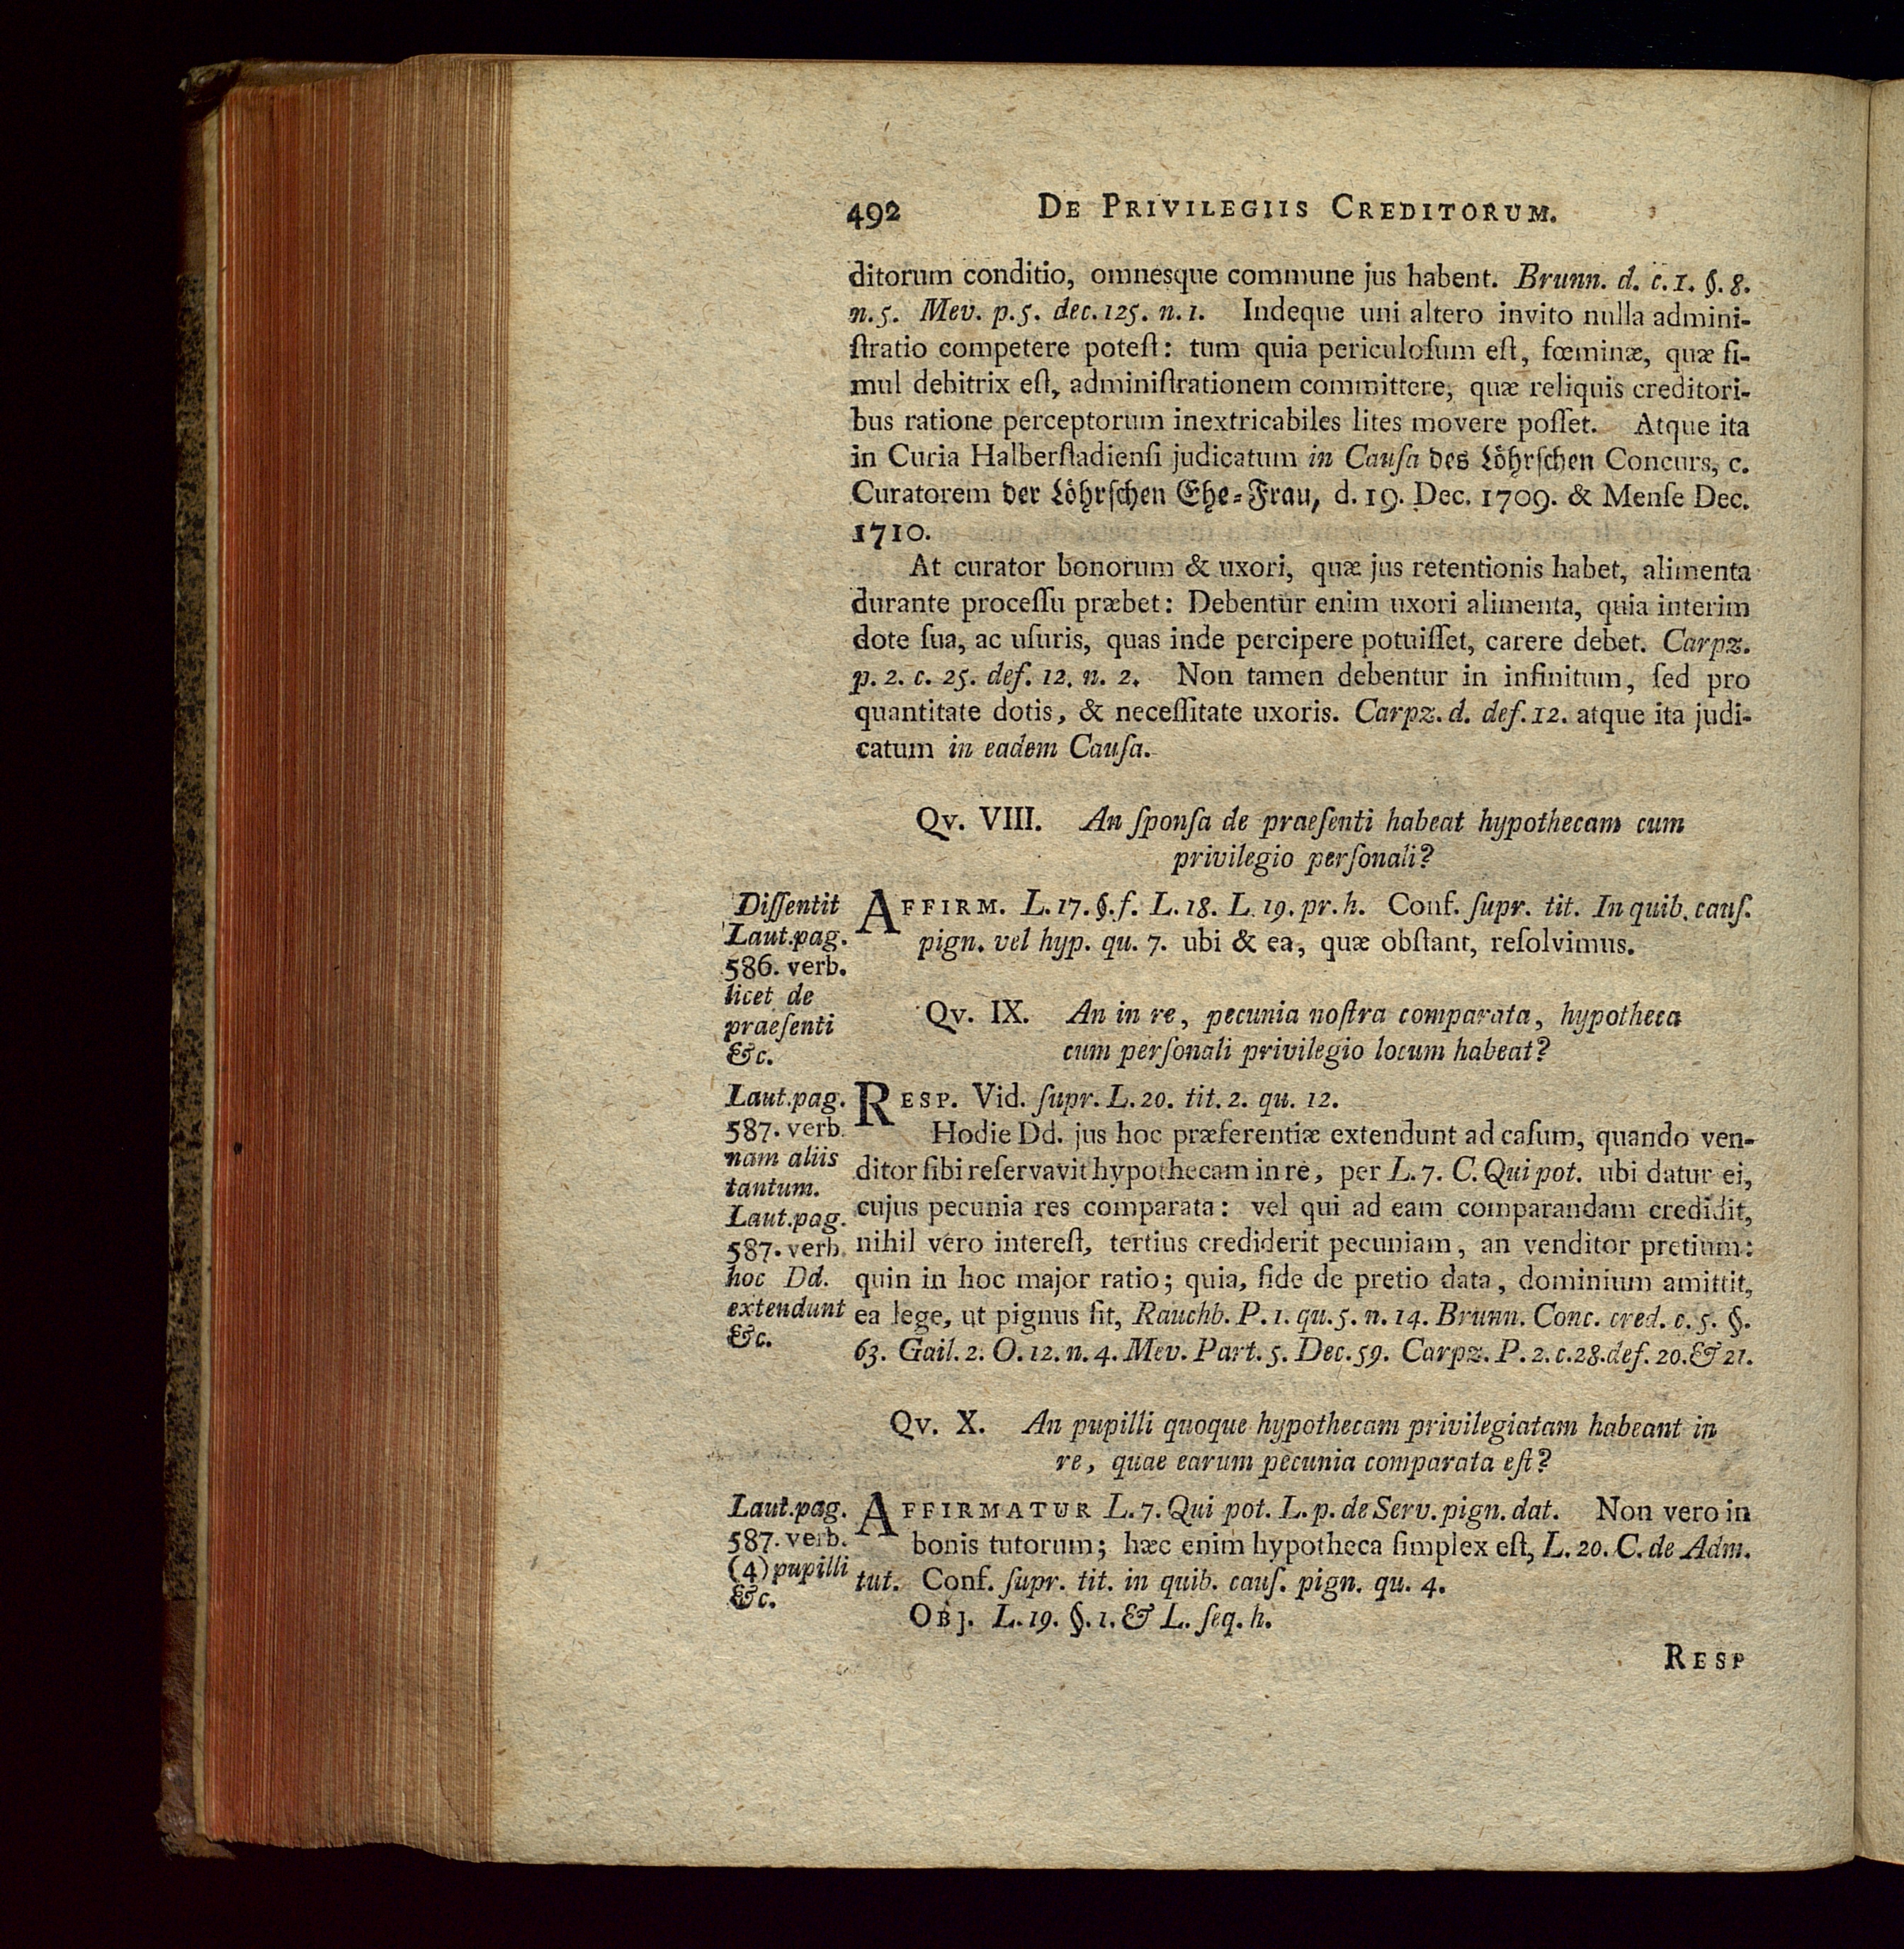 492 DE PRIVILEGIIS CREDITORUM.
ditorum conditio, omnesque commune jus habent. Brunn. d. c. 1. §. 8.
n. 5. Mev. p. 5. dec. 125. n. 1. Indeque uni altero invito nulla admini-
ſtratio competere poteſt: tum quia periculoſum eſt, fœminæ, quæ ſi-
mul debitrix eſt, adminiſtrationem committere, quæ reliquis creditori-
bus ratione perceptorum inextricabiles lites movere poſſet. Atque ita
in Curia Halberſtadienſi judicatum in Cauſa des Löhrſchen Concurs, c.
Curatorem der Löhrſchen Ehe-Frau, d. 19. Dec. 1709. & Menſe Dec.
1710.
At curator bonorum & uxori, quæ jus retentionis habet, alimenta
durante proceſſu præbet: Debentur enim uxori alimenta, quia interim
dote ſua, ac uſuris, quas inde percipere potuiſſet, carere debet. Carpz.
p. 2. c. 25. def. 12. n. 2. Non tamen debentur in infinitum, ſed pro
quantitate dotis, & neceſſitate uxoris. Carpz. d. def. 12. atque ita judi-
catum in eadem Cauſa.
Qv. VIII. An ſponſa de praeſenti habeat hypothecam cum
privilegio perſonali?
AFFIRM. L. 17. §. f. L. 18. L. 19. pr. h. Conf. ſupr. tit. In quib. cauſ.
pign. vel hyp. qu. 7. ubi & ea, quæ obſtant, reſolvimus.
Diſſentit
Laut. pag.
586. verb.
licet de
praeſenti
&c.
Qv. IX. An in re, pecunia noſtra comparata, hypotheca
cum perſonali privilegio locum habeat?
RESP. Vid. ſupr. L. 20. tit. 2. qu. 12.
Hodie Dd. jus hoc præferentiæ extendunt ad caſum, quando ven-
ditor ſibi reſervavit hypothecam in re, per L. 7. C. Qui pot. ubi datur ei,
cujus pecunia res comparata: vel qui ad eam comparandam credidit,
nihil vero intereſt, tertius crediderit pecuniam, an venditor pretium:
quin in hoc major ratio; quia, fide de pretio data, dominium amittit,
ea lege, ut pignus ſit, Rauchb. P. 1. qu. 5. n. 14. Brunn. Conc. cred. c. 5. §.
63. Gail. 2. O. 12. n. 4. Mev. Part. 5. Dec. 59. Carpz. P. 2. c. 28. def. 20. & 21.
Laut. pag.
587. verb.
nam aliis
tantum.
Laut. pag.
587. verb.
hoc Dd.
extendunt
&c.
Qv. X. An pupilli quoque hypothecam privilegiatam habeant in
re, quae earum pecunia comparata eſt?
AFFIRMATUR L. 7. Qui pot. L. p. de Serv. pign. dat. Non vero in
bonis tutorum; hæc enim hypotheca ſimplex eſt, L. 20. C. de Adm.
tut. Conf. ſupr. tit. in quib. cauſ. pign. qu. 4.
OBJ. L. 19. §. 1. & L. ſeq. h.
Laut. pag.
587. verb.
(4) pupilli
&c.
RESP